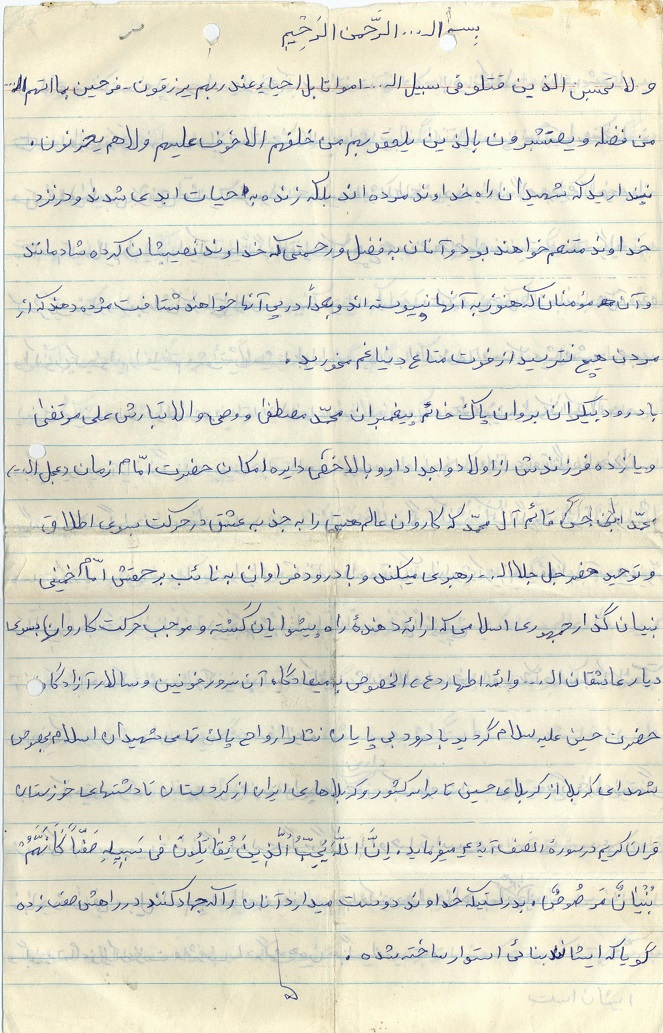 بسم الـ... الرَّحمن الرَّحِیمِ
و لا تحسبن الذین قتلو فی سبیل الـ... امواتا بل احیاء عند ربهم یرزقون - فرحین بما اتهم الـ...
من فضله و یستبشرون بالذین یلحقو بهم من خلفهم الا خوف علیهم ولاهم یحزنون.
نپندارید که شهیدان راه خداوند مرده اند بلکه زنده به حیات ابدی شدند و در نزد
خداوند متنعم خواهند بود و آنان به فضل و رحمتی که خداوند نصیبشان کرده شادمانند
و آن مؤمنان که هنوز به آنها نپیوسته اند و بعداً در پی آنها خواهند شتافت مژده دهند که از
مردن هیچ نترسید از فوت متاع دنیا غم مخورید.
با درود بیکران بروان پاک خاتم پیغمبران محمّد مصطفیٰ و وصی والاتبارش علی مرتضیٰ
و یازده فرزندش از اولاد و اجداد او و بالاخص دایره امکان حضرت امّام زمان (عجل الـ...)
محمّد ابن حسن قائم آل محمّد که کاروان عالم هستی را به جذبه عشق در حرکت بسوی اطلاق
و توحید حضر جل جلاالـ... رهبری میکند و با درود فراوان به نائب برحقش امّام خمینی
بنیان گذار جمهوری اسلامی که ارائه دهندهٔ راه پیشوایان گشته و موجب حرکت کاروان بسوی
دیار عاشقان الـ... و ائمه اطهار (ع) الخصوص به میعادگاه آن سرور خونین و سالار آزادگان
حضرت حسین علیه سلام گردید با درود بی پایان نثار ارواح پاک تمامی شهیدان اسلام بخصوص
شهدای کربلا از کربلای حسین تا کشور و کربلاهای ایران از کردستان تا دشتهای خوزستان
قران کریم در سورهٔ الصف آیهٔ میفرماید. اِنَّ اللّهَ یُحِبُّ الَّذینَ یُقاتِلُونَ فی سَبیلِهِ صَفّاً کَاَنَّهُمْ
بُنْیانٌ مَرصُوصٌ، بدرستیکه خداوند دوست میدارد آنان را که جهاد کنند در راهش صف زده
گویا که ایشانند بنائی استوار ساخته شده.